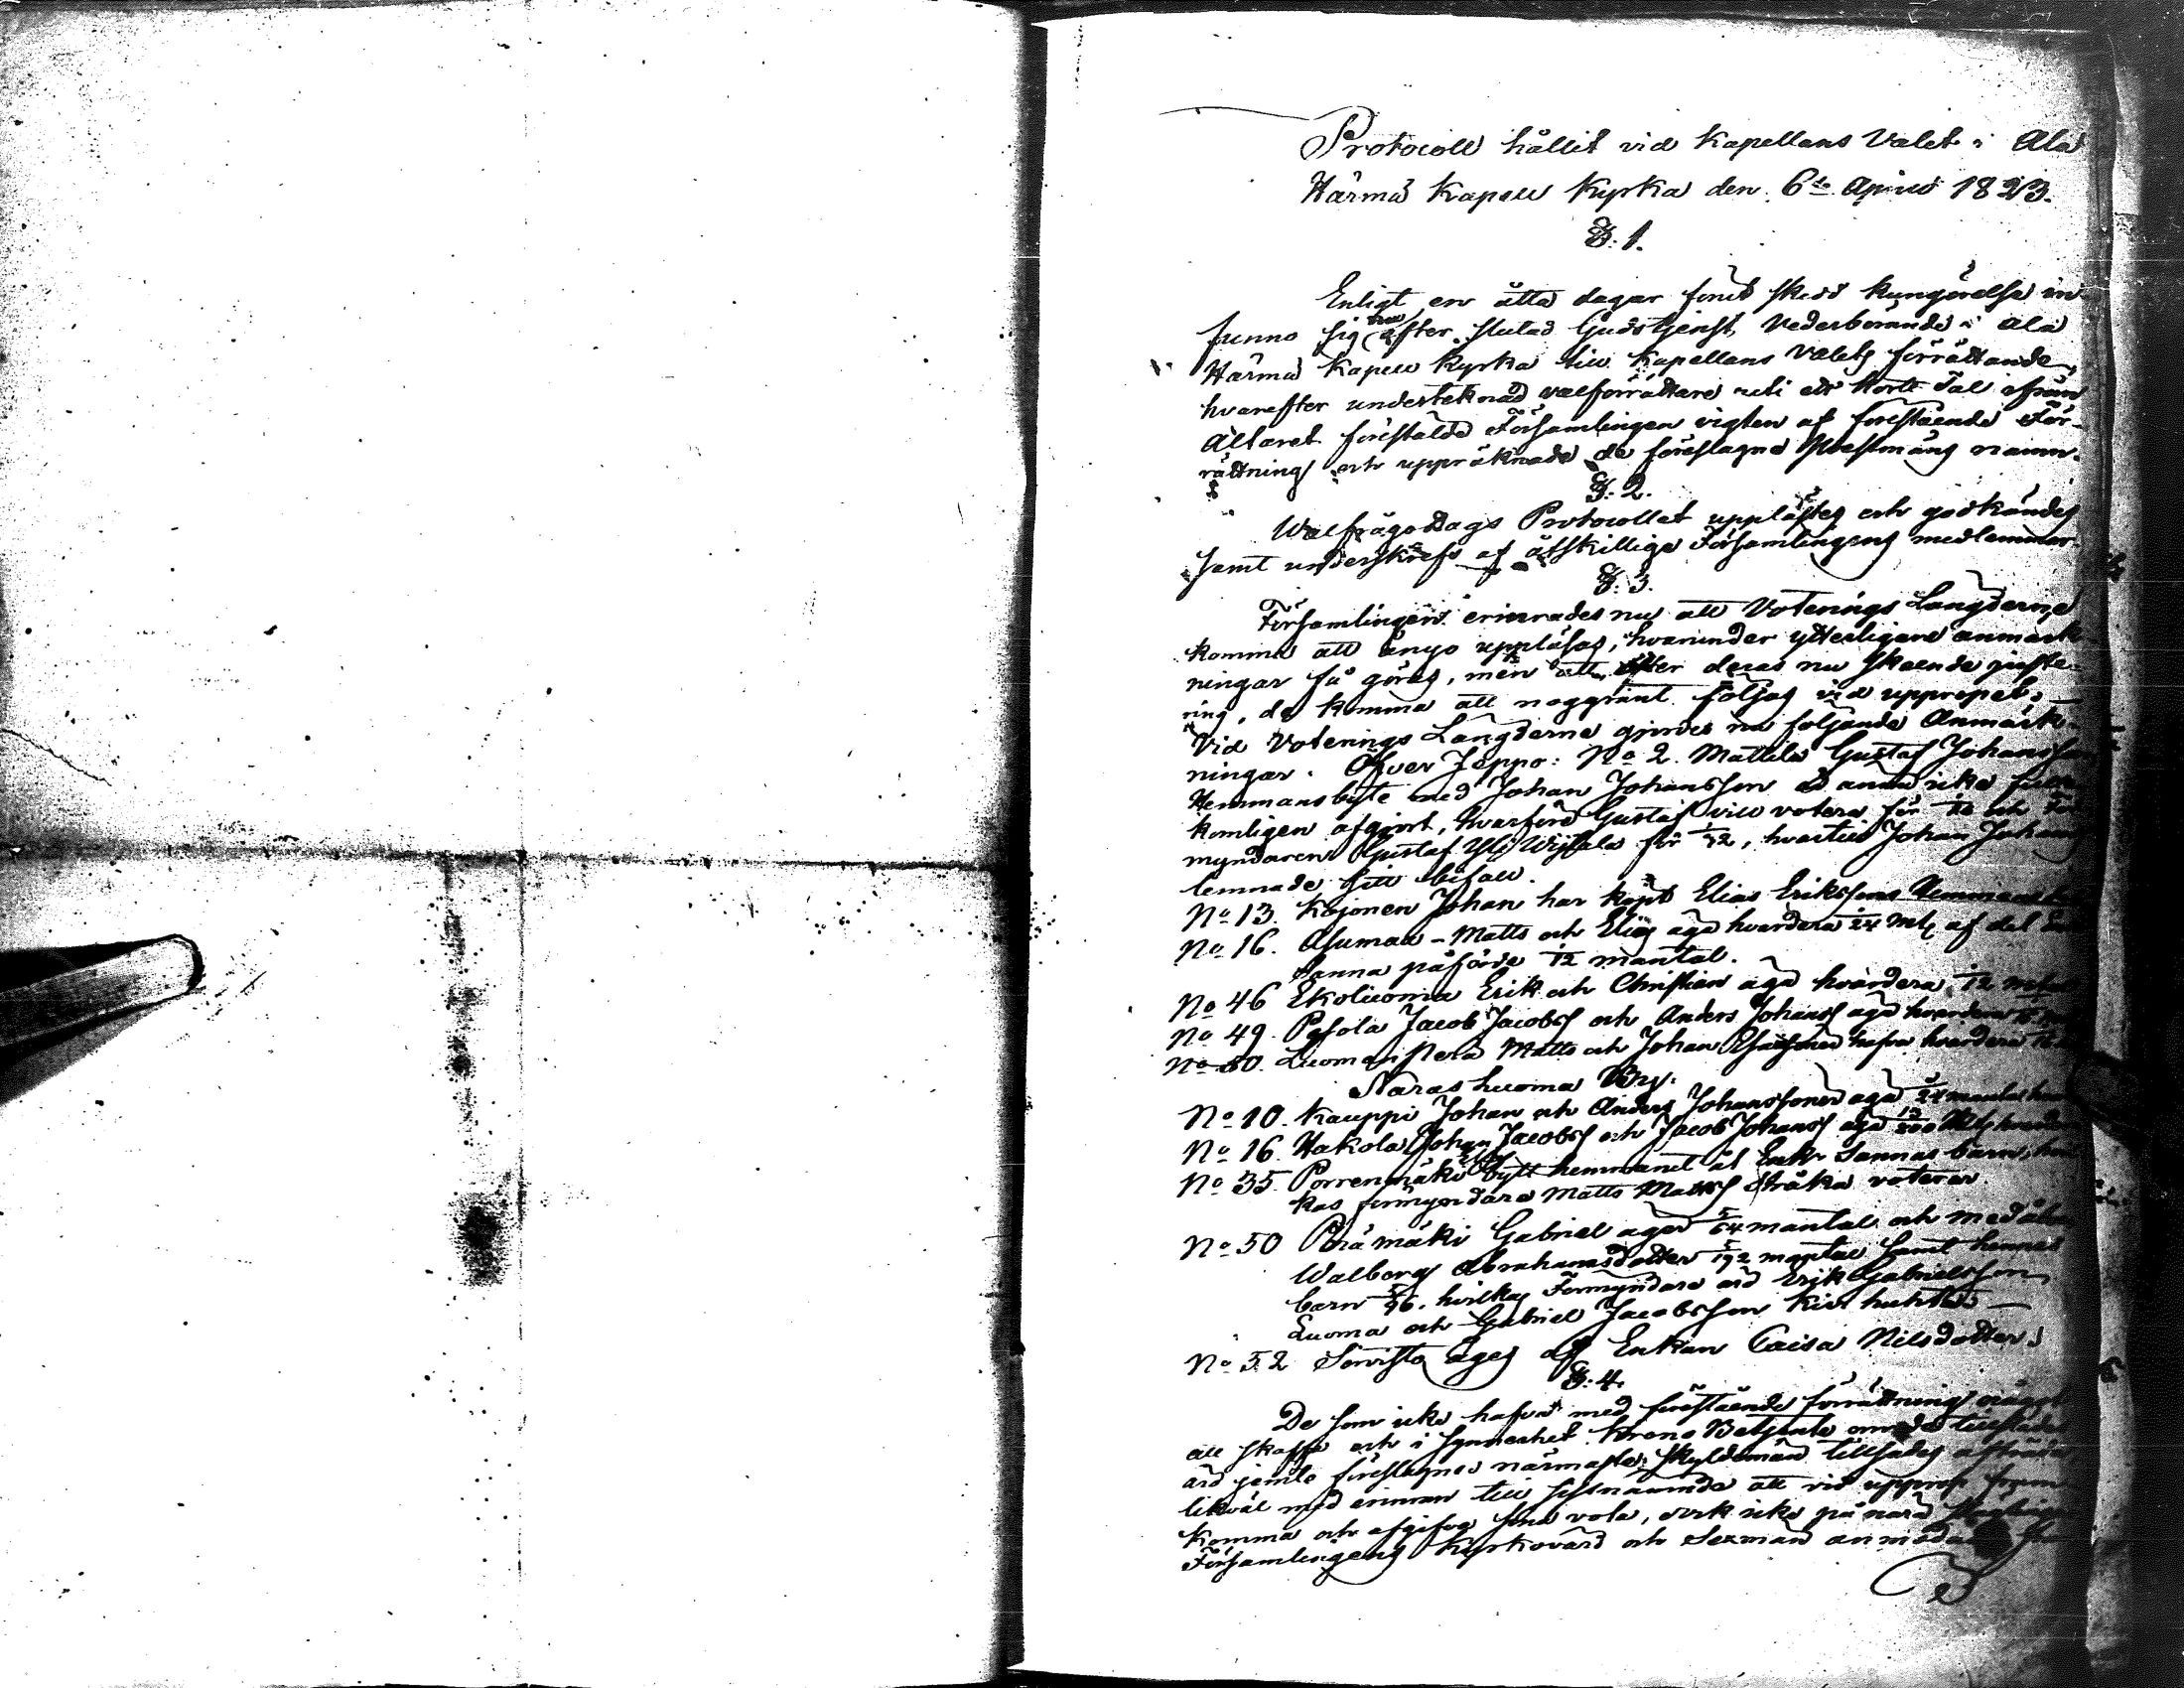 Protocoll hållit vid Kapellans Valet i Ala
Härmä Kapell Kyrka den 6te April 1823.
§. 1.
Enligt en åtta dagar förut skedd kungörelse in-
funno sig efter slutad Gudstjenst, Vederbörande i Ala
Härmä Kapell Kyrka till Kapellans Valets förrättande,
hvarefter undertecknad valförrättare uti ett kort Tal ifrån
Altaret föreställde Församlingen vigten af förestående För-
rättning och uppräknade de föreslagne Prestmäns namn.
§. 2.
Walfrågodags Protocollet upplästes och godkändes
samt underskrefs af åtskillige Församlingens medlemmar.
§. 3.
Församlingen erinrades nu att Voterings Längderne
komma att ånyo uppläsas, hvarunder ytterligare anmärk-
ningar få göras, men att efter deras nu skeende juste-
ring, de komma att noggrant följas vid uppropet.
Vid Voterings Längderne gjordes nu följande Anmärk-
ningar. Öfver Jeppo: No 2. Mattila Gustaf Johansson
Hemmansbyte med Johan Johansson är ännu icke
komligen afgjort, hvarföre Gustaf vill votera för och För
myndaren Gustaf Yli för 1/32, hvartill Johan
lemnade sitt bifall.
No 13. Kojonen Johan har köpt Elias Erikssons Hemmans
No 16. Asumaa - Matts och Elias äga hvardera 1/24 Mtl af det
Sanna påförde 1/12 mantal.
No 46 Ekoluoma Erik och Christian äga hvardera 1/12
No 49. Pesola Jacob Jacobss och Anders Johanss äga hvardera
No 50. Luomanperä Matts och Johan hafva hvardera
Naras luoma By.
No 10. Kauppi Johan och Anders Johanssoner äga 5/24 mantal
No 16. Hakola Johan Jacobss och Jacob Johanss äga
No 35. Porrenmäki bytt hemmanet åt Enk. Sannas barn,
kas förmyndare Matts Mattss Stråka voterar.
No 50 Perämäki Gabriel äger 5/64 mantal och
Walborg Abrahamsdotter 5/192 mantal samt hennes
barn 5/96. hvilkas Förmyndare är Erik Gabrielsson
Luoma och Gabriel Jacobsson Kivi huhta
No 52 äges af Enkan Caisa Nilsdotter.
§. 4.
De som icke hafva med förestående förrättning något
att skaffa och i synnerhet Krono Betjente om de tillstädes
äro jemte föreslagnes närmaste Skyldemän tillsades afträda
likväl med erinran till sistnämnde att vid upprop
komma och afgifva sina vota,
Församlingens Kyrkovärd och Sexmän